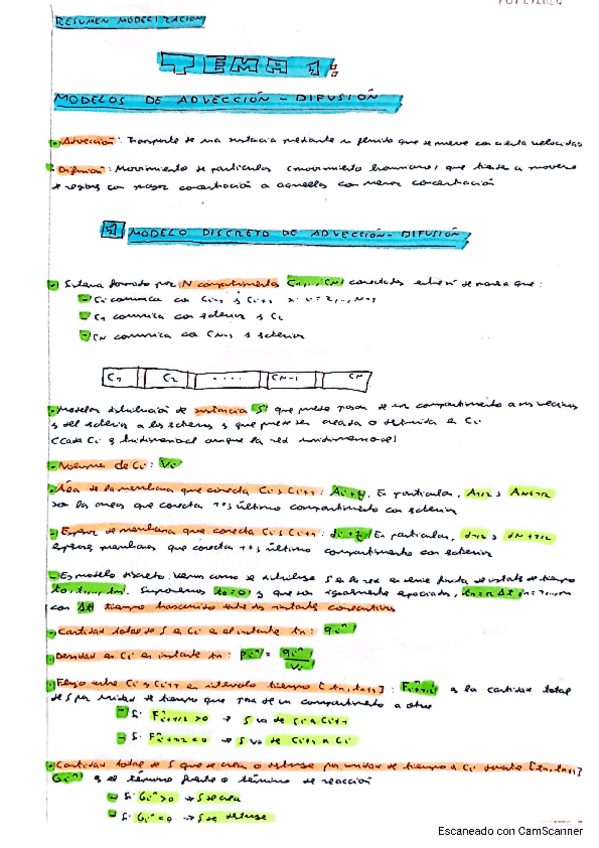 RESUMEN MODELIZACIÓN
TEMA 1:
MODELOS DE ADVECCIÓN - DIFUSIÓN
- Advección: Transporte de una sustancia mediante un fluido que se mueve con cierta velocidad
- Difusión: Movimiento de partículas (movimiento browniano) que tiende a moverse
de regiones con mayor concentración a aquellas con menor concentración
1 MODELO DISCRETO DE ADVECCIÓN - DIFUSIÓN
- Sistema formado por N compartimentos C1,..., CN conectados entre sí de manera que:
- Ci comunica con Ci-1 y Ci+1 i=2,..,N-1
- C1 comunica con exterior y C2
- CN comunica con CN-1 y exterior
C1 C2 .... CN-1 CN
- Modelos distribución de sustancia S que puede pasar de un compartimento a sus vecinos
y del exterior a los extremos y que puede ser creada o destruida en Ci
(Cada Ci es tridimensional aunque la red unidimensional)
- Volumen de Ci: Vi
- Área de la membrana que conecta Ci y Ci+1: Ai+½. En particular, A1/2 y AN+1/2
son las áreas que conecta 1º y último compartimento con exterior
- Espesor de membrana que conecta Ci y Ci+1: di+½. En particular, d1/2 y dN+1/2
espesores membranas que conecta 1º y último compartimento con exterior
- Es modelo discreto. Vemos como se distribuye S en la red en serie finita de instantes de tiempo
t0, t1,..., tm. Suponemos t0=0 y que son igualmente espaciados, tn = n Δt n=1,..,m
con Δt tiempo transcurrido entre dos instantes consecutivos
- Cantidad total de S en Ci en el instante tn: qi^n
- Densidad en Ci en instante tn: ρi^n = qi^n / Vi
- Flujo entre Ci y Ci+1 en intervalo tiempo [tn, tn+1]: F^n i+1/2 es la cantidad total
de S por unidad de tiempo que pasa de un compartimento a otro
- Si F^n i+1/2 > 0 → S va de Ci a Ci+1
- Si F^n i+1/2 < 0 → S va de Ci+1 a Ci
- Cantidad total de S que se crea o destruye por unidad de tiempo en Ci durante [tn, tn+1]
Gi^n es el término fuente o término de reacción
- Si Gi^n > 0 → S se crea
- Si Gi^n < 0 → S se destruye
Escaneado con CamScanner